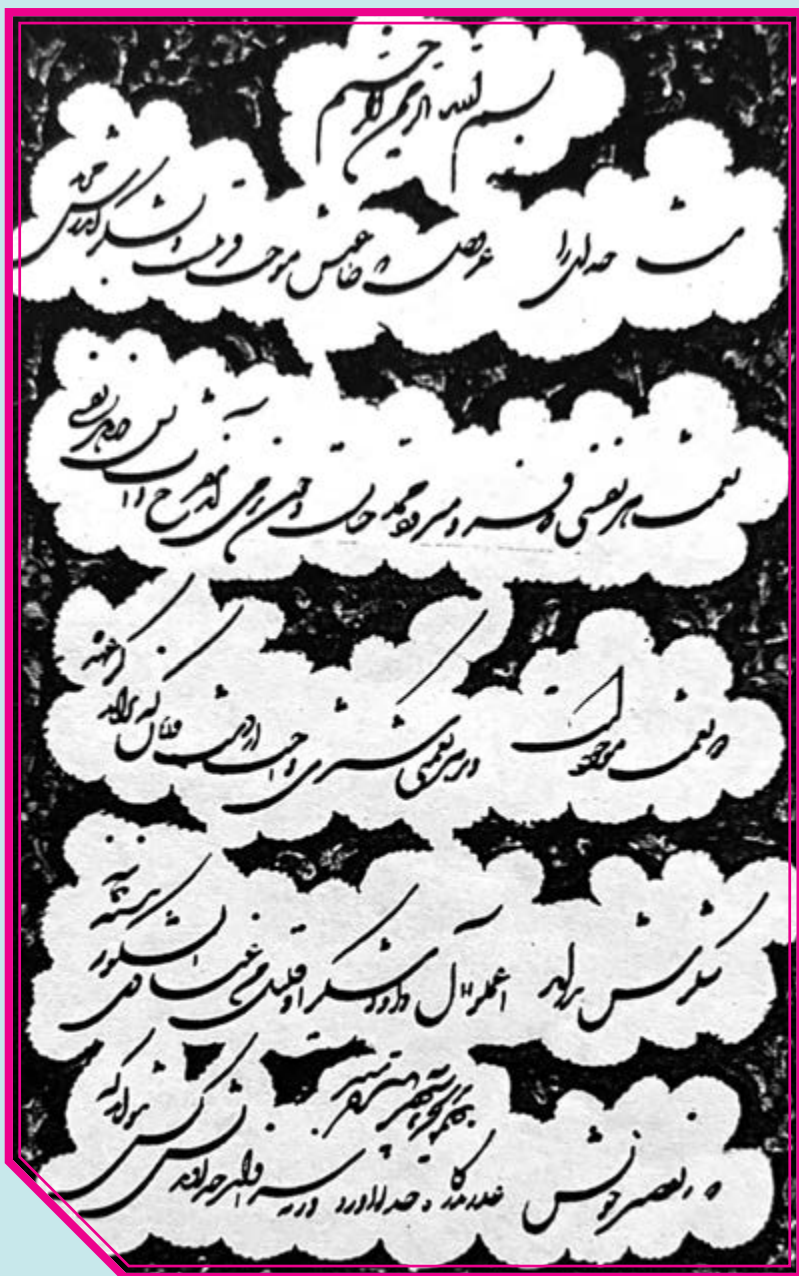 بسم الله الرحمن الرحیم
منت خدایرا عز و جل که طاعتش موجب قربتست و بشکر اندرش مزید
نعمت هر نفسی که فرو میرود ممد حیاتست و چون برمی آید مفرح ذات پس در هر نفسی
دو نعمت موجودست و بر هر نعمتی شکری واجب از دست و زبان که برآید کز عهده
شکرش بدرآید اعملوا آل داود شکرا و قلیل من عبادی الشکور بنده همان به
که ز تقصیر خویش عذر بدرگاه خدا آورد ورنه سزاوار خداوندیش کس نتواند که